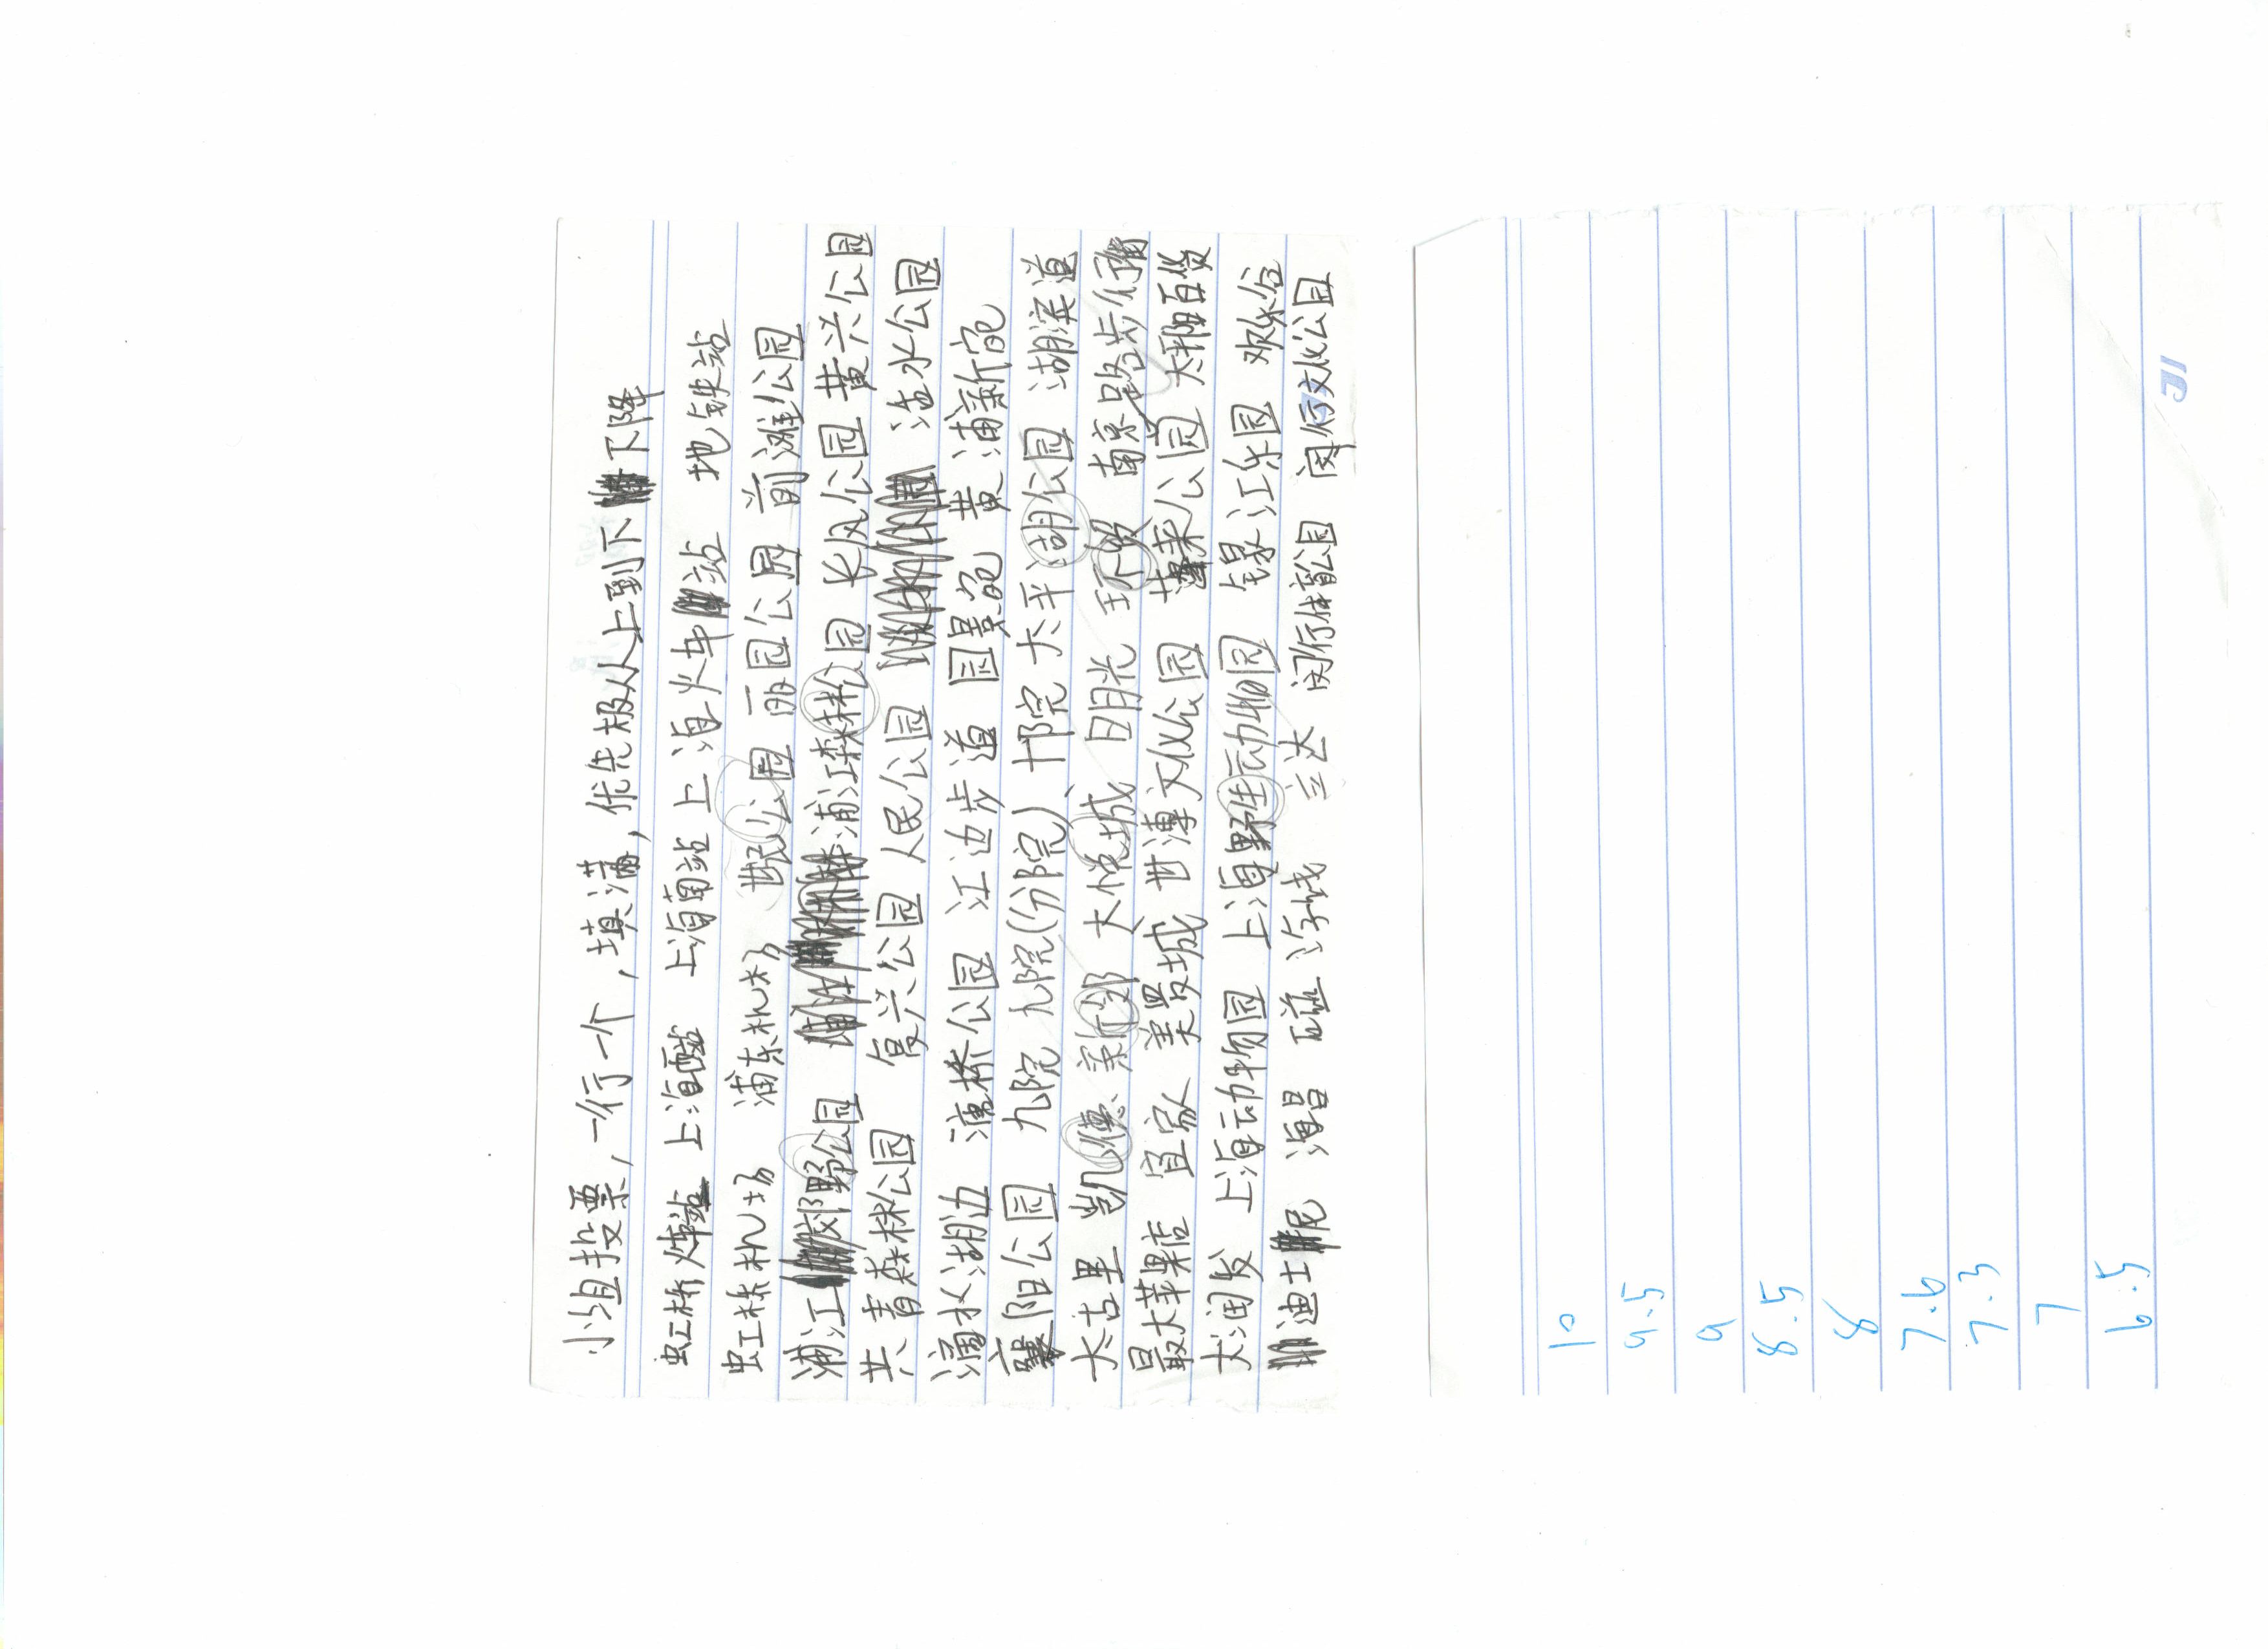 小组投票，一行一个，填满，优先极从上到下下降
虹桥火车站 上海西站 上海南站 上海火车站 地铁站
虹桥机场 浦东机场 世纪公园 丽园公园 前滩公园
浦江郊野公园 浦江森林公园 长风公园 黄兴公园
共青森林公园 复兴公园 人民公园 活水公园
滴水湖边 蒲桥公园 江边步道 国景苑 黄浦新苑
襄阳公园 九院 九院(分院) 邗院 太平湖公园 湖滨道
太古里 凯德 新邻 大悦城 日月光 环贸 南京路步行街
最大苹果店 宜家 美罗城 世博文化公园 蓬莱公园 太阳百货
大润发 上海动物园 上海野生动物园 锦江乐园 欢乐谷
迪士尼 海昌 兰达 闵行体育公园 闵行文化公园
10
9.5
9
8.5
8
7.6
7.3
7
6.5